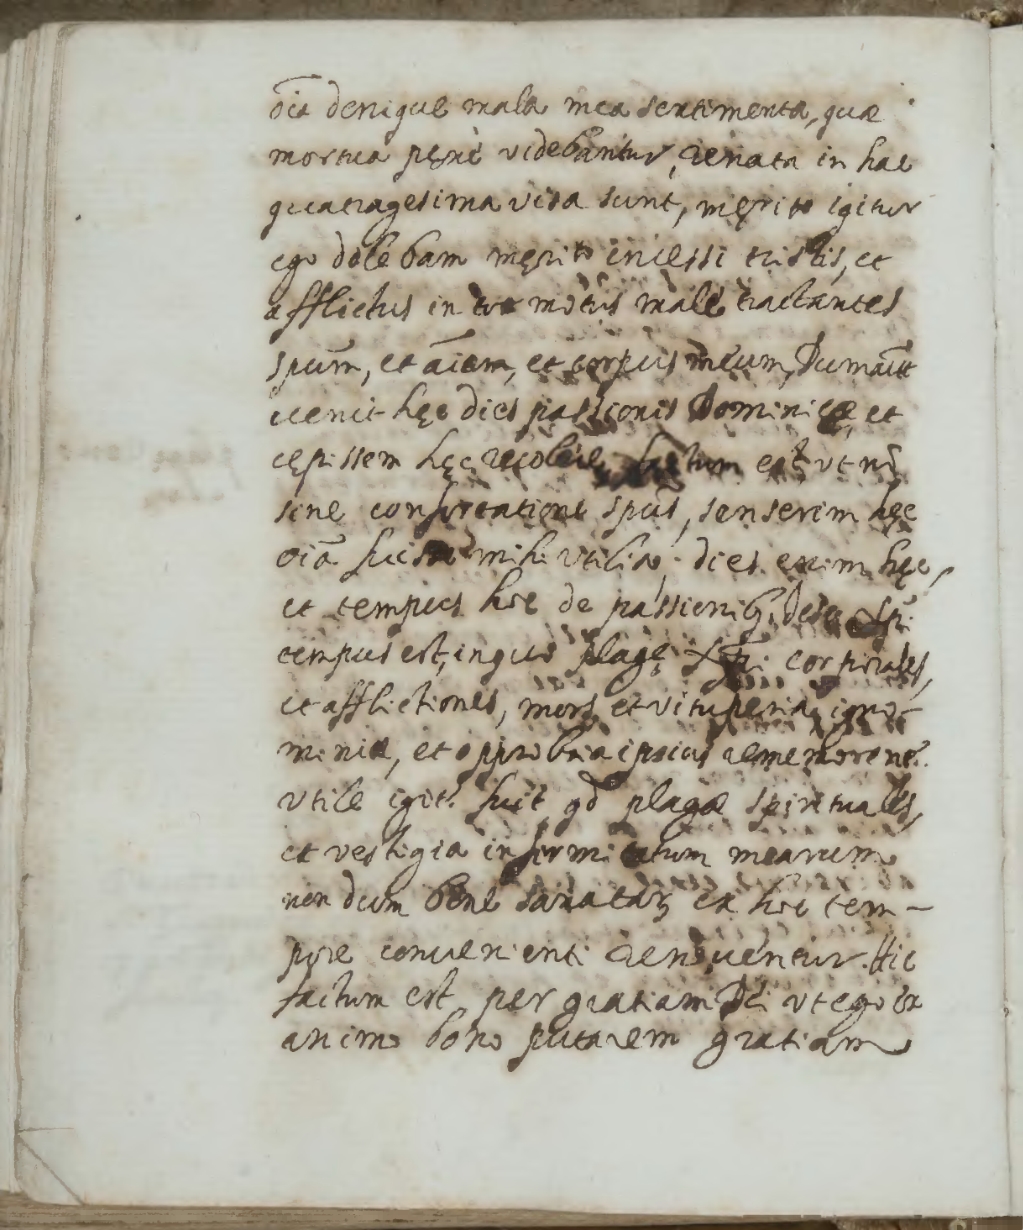 oīa denique mala mea sentimenta, quæ
mortua penè videbantur, renata in hac
quatragesima visa sunt, merito igitur
ego dolebam merito incessi tristis, et
afflictus in tot motus malè tractantes
spūm, et āīam, et corpus meum, Dum aūt
venit hęc dies passionis Dominicæ, et
cępissem hęc recolere, factum est, vt nō
sine confortatione spūs, senserim hęc
oīa fuisse mihi vtilia: dies enim hęc,
et tempus hoc de passionibȝ Xp̄i
tempus est, in quo plagę Xp̄i corporales,
et afflictiones, mors et vituperia, igno-
miniæ, et opprobria ipsius rememorent.
vtile igitr fuit qđ plagæ spirituales,
et vestigia infirmitatum mearum
non dum bene sanatarȝ ex hoc tem-
pore conuenienti renouentur. Hic
factum est per gratiam Dei vt ego ex
animo bono putarem gratiam